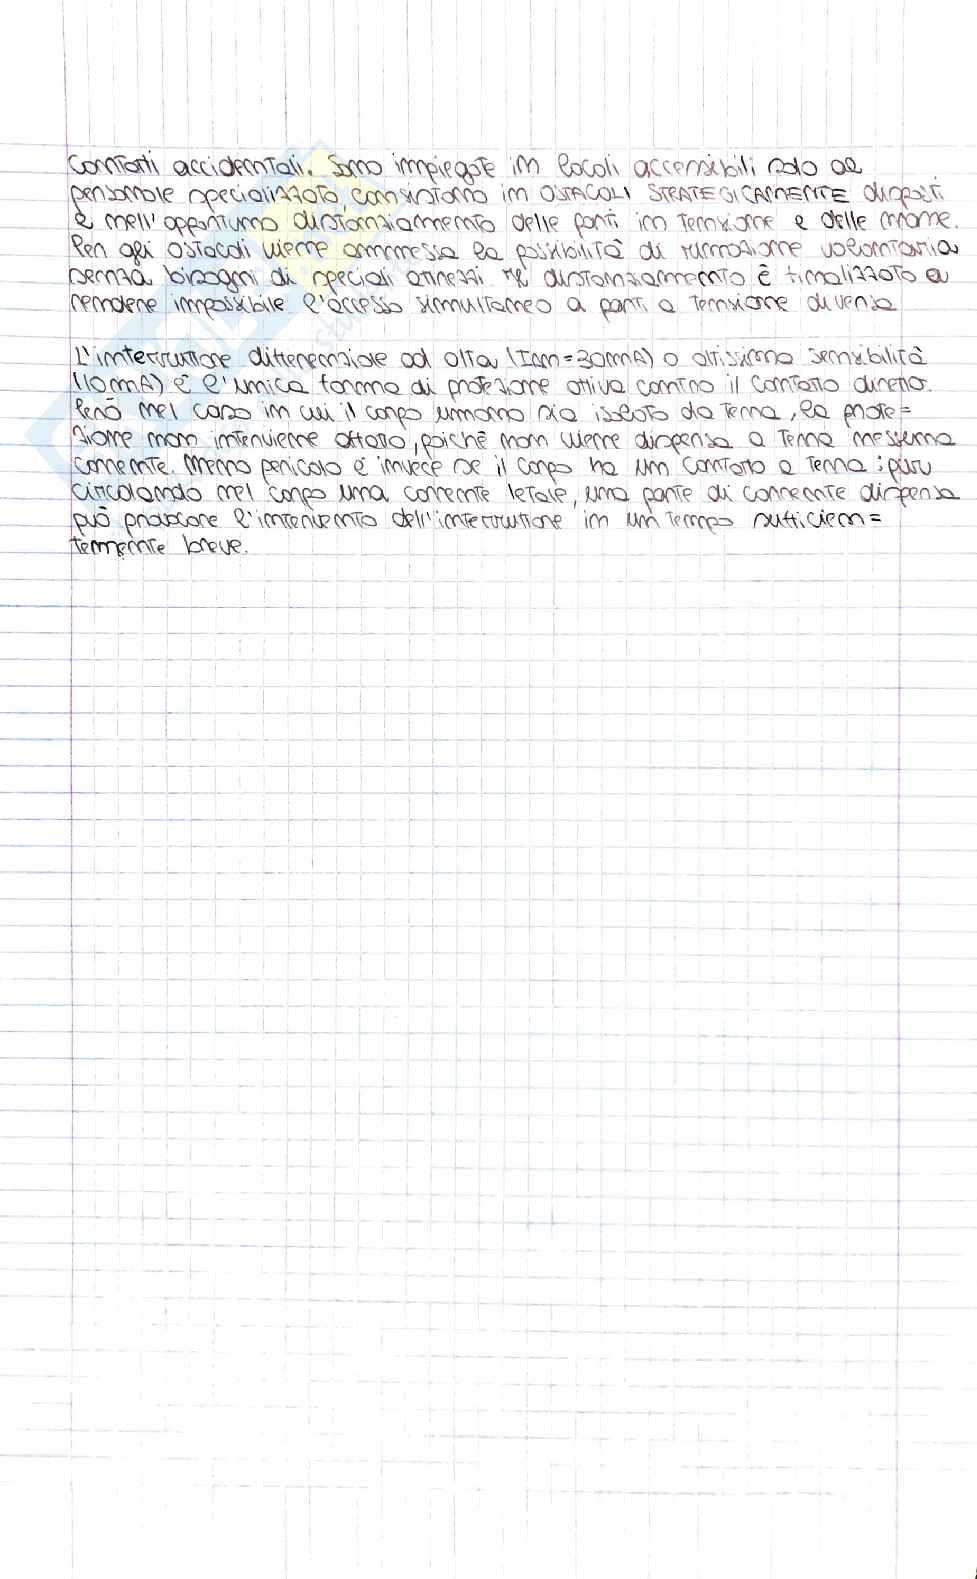 contatti accidentali. Sono impiegate in locali accessibili solo al
personale specializzato, consistono in OSTACOLI STRATEGICAMENTE disposti
e nell'opportuno distanziamento delle parti in tensione e delle masse.
Per gli ostacoli viene ammessa la possibilità di rimozione volontaria
senza bisogni di speciali attrezzi. Il distanziamento è finalizzato a
rendere impossibile l'accesso simultaneo a parti a tensione diversa
L'interruttore differenziale ad alta (IΔn=30mA) o altissima sensibilità
(10mA) è l'unica forma di protezione attiva contro il contatto diretto.
Però nel caso in cui il corpo umano sia isolato da terra, la prote=
zione non interviene affatto, poiché non viene dispersa a terra nessuna
corrente. Meno pericolo è invece se il corpo ha un contatto a terra: pur
circolando nel corpo una corrente letale, una parte di corrente dispersa
può provocare l'intervento dell'interruttore in un tempo sufficien=
temente breve.